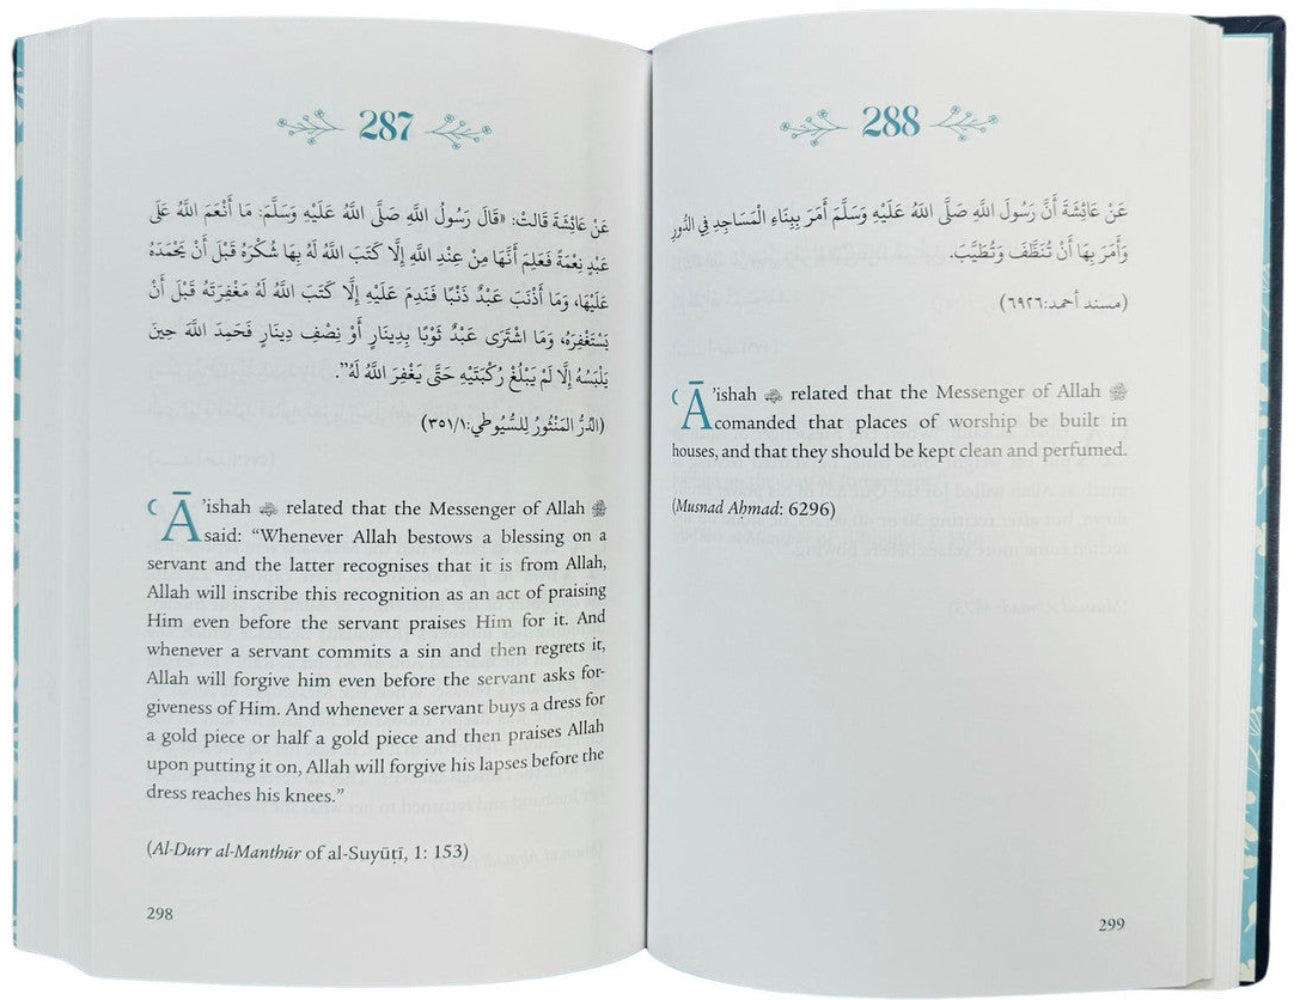 287
عَنْ عَائِشَةَ قَالتْ: «قَالَ رَسُولُ اللَّهِ صَلَّى اللَّهُ عَلَيْهِ وَسَلَّمَ: مَا أَنْعَمَ اللَّهُ عَلَى
عَبْدٍ نِعْمَةً فَعَلِمَ أَنَّهَا مِنْ عِنْدِ اللَّهِ إِلَّا كَتَبَ اللَّهُ لَهُ بِهَا شُكْرَهُ قَبْلَ أَنْ يَحْمَدَهُ
عَلَيْهَا، وَمَا أَذْنَبَ عَبْدٌ ذَنْبًا فَنَدِمَ عَلَيْهِ إِلَّا كَتَبَ اللَّهُ لَهُ مَغْفِرَتَهُ قَبْلَ أَنْ
يَسْتَغْفِرَهُ، وَمَا اشْتَرَى عَبْدٌ ثَوْبًا بِدِينَارٍ أَوْ نِصْفِ دِينَارٍ فَحَمِدَ اللَّهَ حِينَ
يَلْبَسُهُ إِلَّا لَمْ يَبْلُغْ رُكْبَتَيْهِ حَتَّى يَغْفِرَ اللَّهُ لَهُ”.
(الدُّرُّ المَنْثُورُ لِلسُّيُوطي:٣٥١/١)
‘Ā’ishah related that the Messenger of Allah ﷺ
said: “Whenever Allah bestows a blessing on a
servant and the latter recognises that it is from Allah,
Allah will inscribe this recognition as an act of praising
Him even before the servant praises Him for it. And
whenever a servant commits a sin and then regrets it,
Allah will forgive him even before the servant asks for-
giveness of Him. And whenever a servant buys a dress for
a gold piece or half a gold piece and then praises Allah
upon putting it on, Allah will forgive his lapses before the
dress reaches his knees.”
(Al-Durr al-Manthūr of al-Suyūṭī, 1: 153)
298
288
عَنْ عَائِشَةَ أَنَّ رَسُولَ اللَّهِ صَلَّى اللهُ عَلَيْهِ وَسَلَّمَ أَمَرَ بِبِنَاءِ الْمَسَاجِدِ فِي الدُّورِ
وَأَمَرَ بِهَا أَنْ تُنَظَّفَ وَتُطَيَّبَ.
(مسند أحمد:٦٩٢٦)
‘Ā’ishah related that the Messenger of Allah ﷺ
comanded that places of worship be built in
houses, and that they should be kept clean and perfumed.
(Musnad Aḥmad: 6296)
299